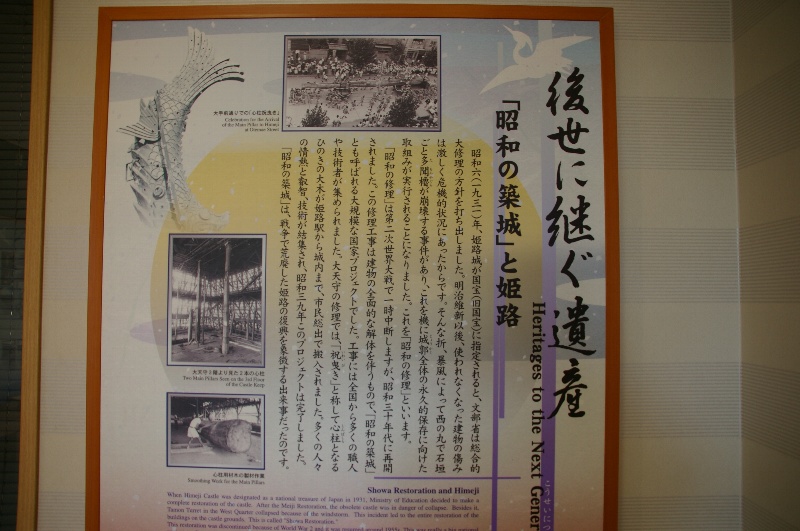 後世に継ぐ遺産
Heritages to the Next Gener
「昭和の築城」と姫路
昭和六(一九三一)年、姫路城が国宝(旧国宝)に指定されると、文部省は総合的
大修理の方針を打ち出しました。明治維新以後、使われなくなった建物の傷み
は激しく危機的状況にあったからです。そんな折、暴風によって西の丸で石垣
ごと多聞櫓が崩壊する事件があり、これを機に城郭全体の永久的保存に向けた
取組みが実行されることになりました。これを「昭和の修理」といいます。
「昭和の修理」は第二次世界大戦で一時中断しますが、昭和三十年代に再開
されました。この修理工事は建物の全面的な解体を伴うもので、「昭和の築城」
とも呼ばれる大規模な国家プロジェクトでした。工事には全国から多くの職人
や技術者が集められました。大天守の修理では、「祝曳き」と称して心柱となる
ひのきの大木が姫路駅から城内まで、市民総出で搬入されました。多くの人々
の情熱と叡智、技術が結集され、昭和三九年このプロジェクトは完了しました。
「昭和の築城」は、戦争で荒廃した姫路の復興を象徴する出来事だったのです。
大手前通りでの「心柱祝曳き」
Celebration for the Arrival
of the Main Pillar in Himeji
at Otemae Street
大天守3階より見た2本の心柱
Two Main Pillars Seen on the 3rd Floor
of the Castle Keep
心柱用材木の製材作業
Smoothing Work for the Main Pillars
Showa Restoration and Himeji
When Himeji Castle was designated as a national treasure of Japan in 1931, Ministry of Education decided to make a
complete restoration of the castle. After the Meiji Restoration, the obsolete castle was in danger of collapse. Besides it,
Tamon Yagura in the West Quarter collapsed because of the windstorm. This incident led to the entire restoration of the
buildings on the castle grounds. This is called "Showa Restoration."
This restoration was discontinued because of World War 2 and